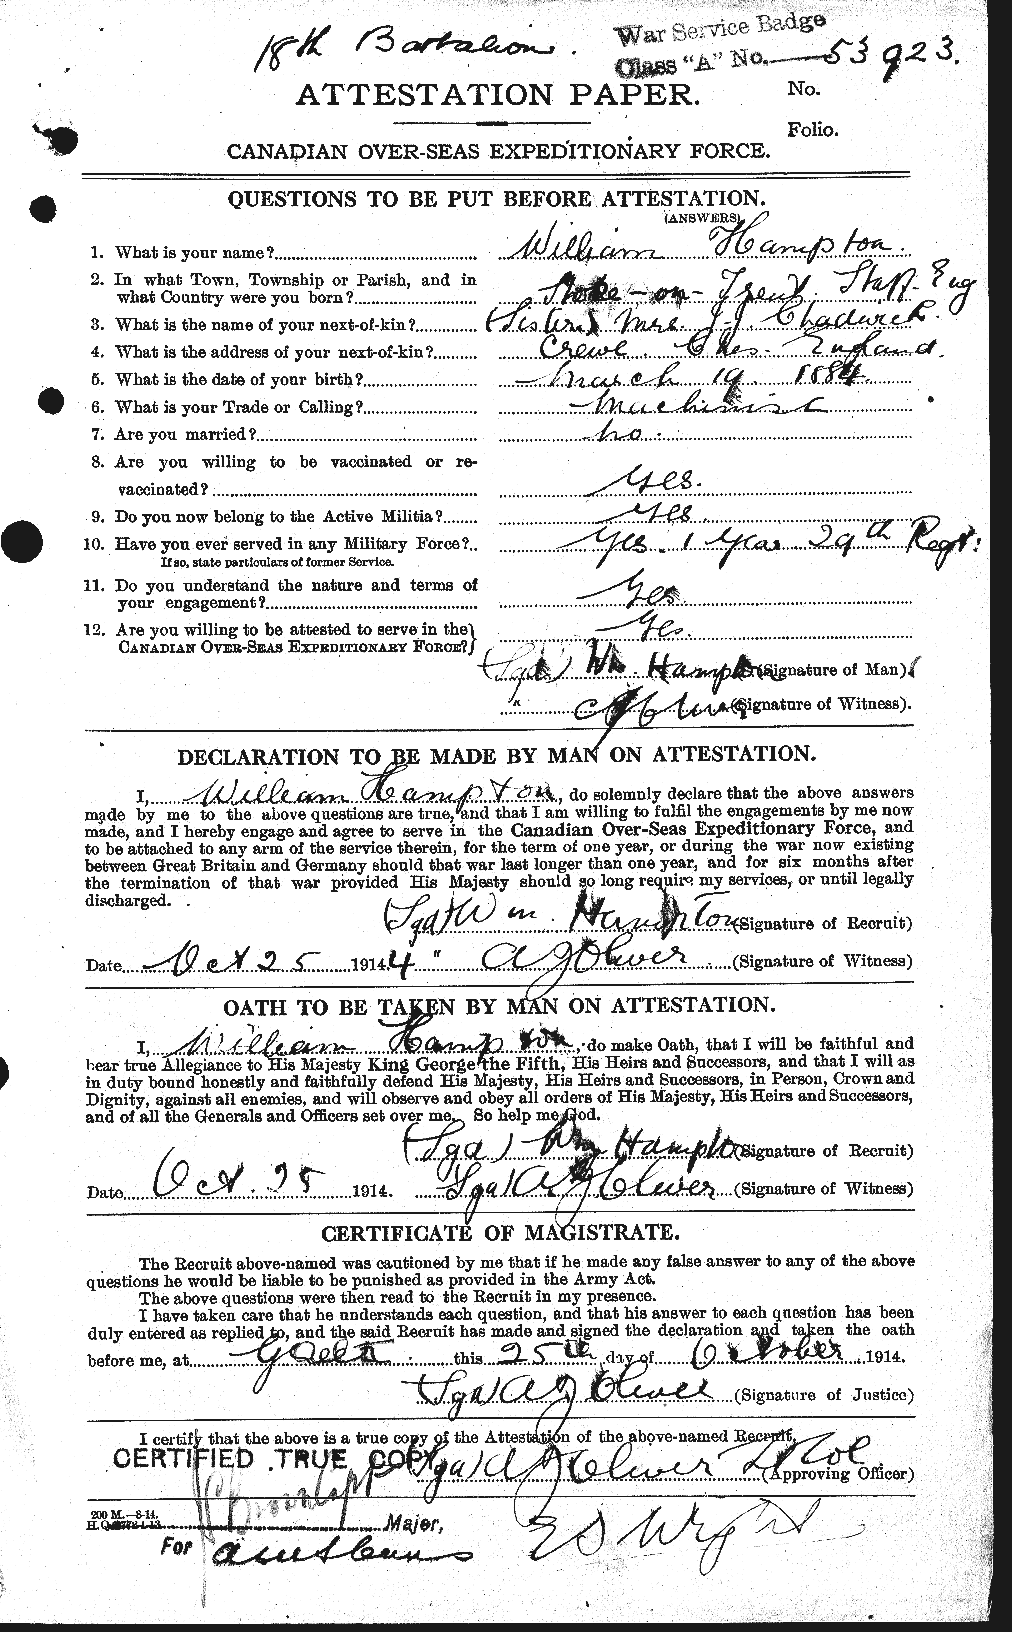 18th Battalion.
War Service Badge
Class "A" No. 53923.
ATTESTATION PAPER.
No.
Folio.
CANADIAN OVER-SEAS EXPEDITIONARY FORCE.
QUESTIONS TO BE PUT BEFORE ATTESTATION.
(ANSWERS)
1. What is your name? William Hampton.
2. In what Town, Township or Parish, and in
what Country were you born? Stoke-on-Trent. Staff. Eng
3. What is the name of your next-of-kin? (Sister) Mrs. J.J. Chadwick.
4. What is the address of your next-of-kin? Crewe. Ches. England.
5. What is the date of your birth? March 19 1884
6. What is your Trade or Calling? Machinist
7. Are you married? no.
8. Are you willing to be vaccinated or re-
vaccinated? Yes.
9. Do you now belong to the Active Militia? Yes.
10. Have you ever served in any Military Force? Yes. 1 Year. 29th Regt.
If so, state particulars of former Service.
11. Do you understand the nature and terms of
your engagement? Yes
12. Are you willing to be attested to serve in the
CANADIAN OVER-SEAS EXPEDITIONARY FORCE? Yes.
(Sgd) Wm. Hampton (Signature of Man).
" (Signature of Witness).
DECLARATION TO BE MADE BY MAN ON ATTESTATION.
I, William Hampton, do solemnly declare that the above answers
made by me to the above questions are true, and that I am willing to fulfil the engagements by me now
made, and I hereby engage and agree to serve in the Canadian Over-Seas Expeditionary Force, and
to be attached to any arm of the service therein, for the term of one year, or during the war now existing
between Great Britain and Germany should that war last longer than one year, and for six months after
the termination of that war provided His Majesty should so long require my services, or until legally
discharged.
(Sgd) Wm. Hampton (Signature of Recruit)
Date Oct 25 1914. 4 " A J Oliver (Signature of Witness)
OATH TO BE TAKEN BY MAN ON ATTESTATION.
I, William Hampton, do make Oath, that I will be faithful and
bear true Allegiance to His Majesty King George the Fifth, His Heirs and Successors, and that I will as
in duty bound honestly and faithfully defend His Majesty, His Heirs and Successors, in Person, Crown and
Dignity, against all enemies, and will observe and obey all orders of His Majesty, His Heirs and Successors,
and of all the Generals and Officers set over me. So help me God.
(Sgd) Wm Hampton (Signature of Recruit)
Date Oct. 25 1914. (Sgd) A J Oliver (Signature of Witness)
CERTIFICATE OF MAGISTRATE.
The Recruit above-named was cautioned by me that if he made any false answer to any of the above
questions he would be liable to be punished as provided in the Army Act.
The above questions were then read to the Recruit in my presence.
I have taken care that he understands each question, and that his answer to each question has been
duly entered as replied to, and the said Recruit has made and signed the declaration and taken the oath
before me, at Galt this 25th day of October 1914.
(Sgd) A J Oliver (Signature of Justice)
I certify that the above is a true copy of the Attestation of the above-named Recruit.
CERTIFIED TRUE COPY
(Sgd) A J Oliver Lt Col (Approving Officer)
200 M.—8-14.
Major,
For
E S Wright